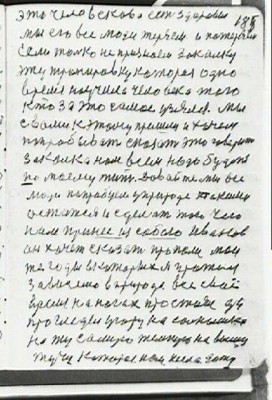 это человекова есть здоровия
мы его все люди теряем и потеряем
если только не признаем закалку
эту тренировку которая одно
время получила человека этого
кто за это самое взялся. мы
с вами к этому пришли и хочем
попробывать сказать это говорит
закалка нам всем надо будет
по моему жить. Давайте мы все
люди попробуем у природе такими
остатся и сделать того чего
нам принес из собою Иванов
он хочет сказать про наши мои
же годы в которых я прожил
заключено в природе все свое
время на ногах простоять да
прогледеть у гору на солнышко
на ту самую темную на вышу
тучу которая нам несла воду